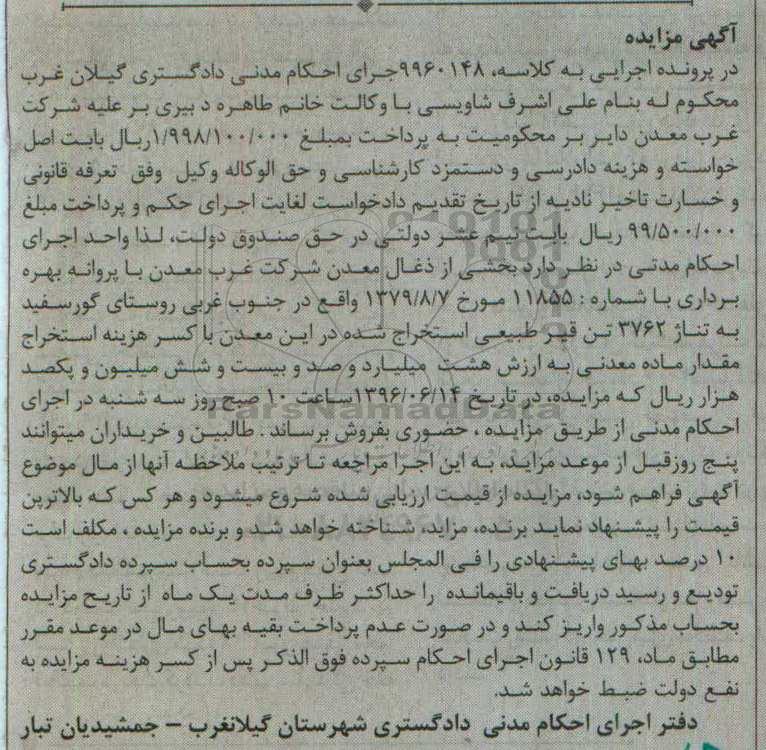 آگهی مزایده
در پرونده اجرایی به کلاسه، ۹۹۶۰۱۴۸جرای احکام مدنی دادگستری گیلان غرب
محکوم له بنام علی اشرف شاویسی با وکالت خانم طاهره د بیری بر علیه شرکت
غرب معدن دایر بر محکومیت به پرداخت بمبلغ ۱/۹۹۸/۱۰۰/۰۰۰ریال بابت اصل
خواسته و هزینه دادرسی و دستمزد کارشناسی و حق الوکاله وکیل وفق تعرفه قانونی
و خسارت تاخیر تادیه از تاریخ تقدیم دادخواست لغایت اجرای حکم و پرداخت مبلغ
۹۹/۵۰۰/۰۰۰ ریال بابت نیم عشر دولتی در حق صندوق دولت، لذا واحد اجرای
احکام مدنی در نظر دارد بخشی از ذغال معدن شرکت غرب معدن با پروانه بهره
برداری با شماره : ۱۱۸۵۵ مورخ ۱۳۷۹/۸/۷ واقع در جنوب غربی روستای گورسفید
به تناژ ۳۷۶۲ تن قیر طبیعی استخراج شده در این معدن با کسر هزینه استخراج
مقدار ماده معدنی به ارزش هشت میلیارد و صد و بیست و شش میلیون و یکصد
هزار ریال که مزایده، در تاریخ ۱۳۹۶/۰۶/۱۴ساعت ۱۰ صبح روز سه شنبه در اجرای
احکام مدنی از طریق مزایده ، حضوری بفروش برساند . طالبین و خریداران میتوانند
پنج روزقبل از موعد مزاید، به این اجرا مراجعه تا ترتیب ملاحظه آنها از مال موضوع
آگهی فراهم شود، مزایده از قیمت ارزیابی شده شروع میشود و هر کس که بالاترین
قیمت را پیشنهاد نماید برنده، مزاید، شناخته خواهد شد و برنده مزایده ، مکلف است
۱۰ درصد بهای پیشنهادی را فی المجلس بعنوان سپرده بحساب سپرده دادگستری
تودیع و رسید دریافت و باقیمانده را حداکثر ظرف مدت یک ماه از تاریخ مزایده
بحساب مذکور واریز کند و در صورت عدم پرداخت بقیه بهای مال در موعد مقرر
مطابق ماد، ۱۲۹ قانون اجرای احکام سپرده فوق الذکر پس از کسر هزینه مزایده به
نفع دولت ضبط خواهد شد.
دفتر اجرای احکام مدنی دادگستری شهرستان گیلانغرب – جمشیدیان تبار
ParsNamadData